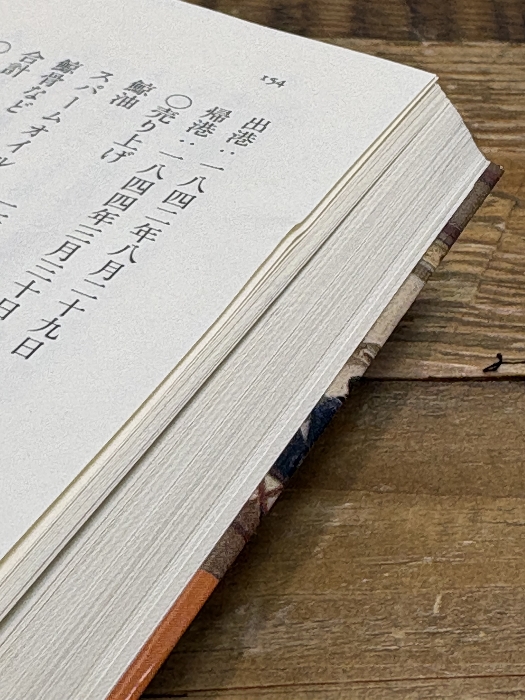 154
出港：一八四二年八月二十九日
帰港：一八四四年三月三十日
〇売り上げ
鯨油
スパームオイル
鯨骨など
合計
〇